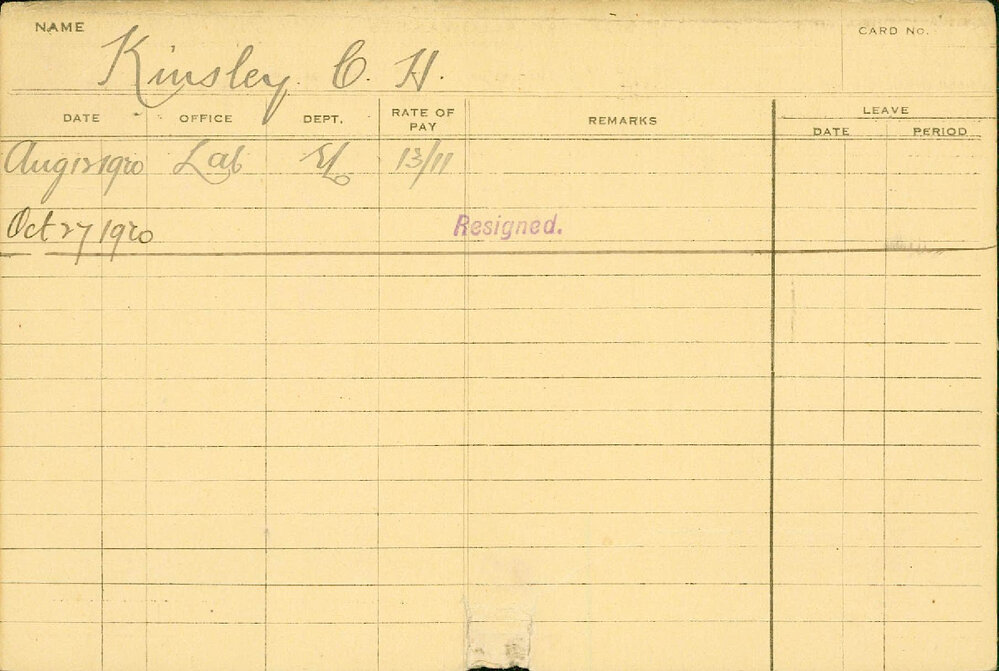 NAME
CARD No.
Kinsley C. H.
DATE OFFICE DEPT. RATE OF PAY REMARKS LEAVE
DATE PERIOD
Aug 12 1920 Lab 13/11
Oct 27 1920 Resigned.